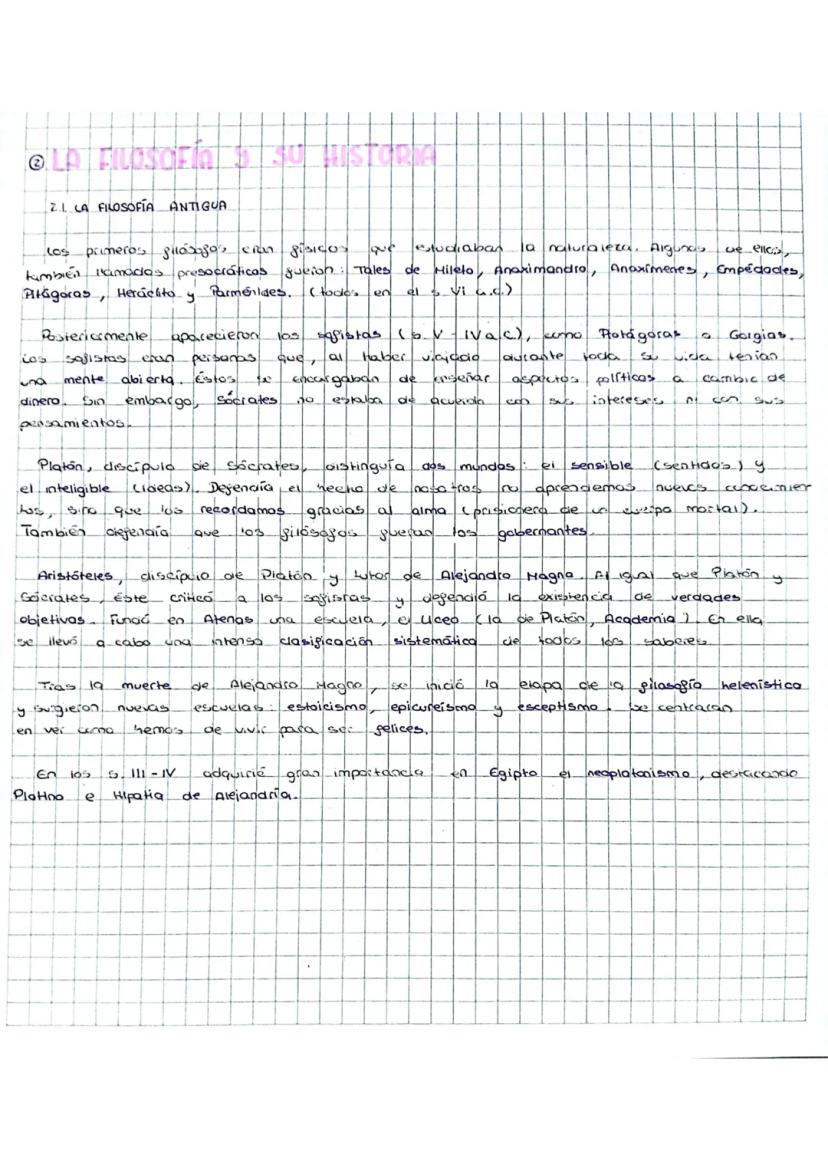 ② LA FILOSOFÍA Y SU HISTORIA
2.1. LA FILOSOFÍA ANTIGUA
Los primeros filósofos eran físicos que estudiaban la naturaleza. Algunos de ellos,
también llamados presocráticos fueron: Tales de Mileto, Anaximandro, Anaxímenes, Empédocles,
Pitágoras, Heráclito y Parménides. (todos en el s. VI a.c.)
Posteriormente aparecieron los sofistas (s. V-IV a.C), como Protágoras o Gorgias.
Los sofistas eran personas que, al haber viajado durante toda su vida tenían
una mente abierta. Éstos se encargaban de enseñar aspectos políticos a cambio de
dinero. Sin embargo, Sócrates no estaba de acuerdo con sus intereses ni con sus
pensamientos.
Platón, discípulo de Sócrates, distinguía dos mundos: el sensible (sentidos) y
el inteligible (ideas). Defendía el hecho de nosotros no aprendemos nuevos conocimien
tos, sino que los recordamos gracias al alma (prisionera de un cuerpo mortal).
También defendía que los filósofos fueran los gobernantes.
Aristóteles, discípulo de Platón y tutor de Alejandro Magno. Al igual que Platón y
Sócrates, éste criticó a los sofistas y defendió la existencia de verdades
objetivas. Fundó en Atenas una escuela, el Liceo (la de Platón, Academia). En ella
se llevó a cabo una intensa clasificación sistemática de todos los saberes
Tras la muerte de Alejandro Magno, se inició la etapa de la filosofía helenística
y surgieron nuevas escuelas: estoicismo, epicureísmo y esceptismo. Se centraran
en ver como hemos de vivir para ser felices.
En los s. III-IV adquirió gran importancia en Egipto el neoplatonismo, destacando
Plotino e Hipatia de Alejandría.